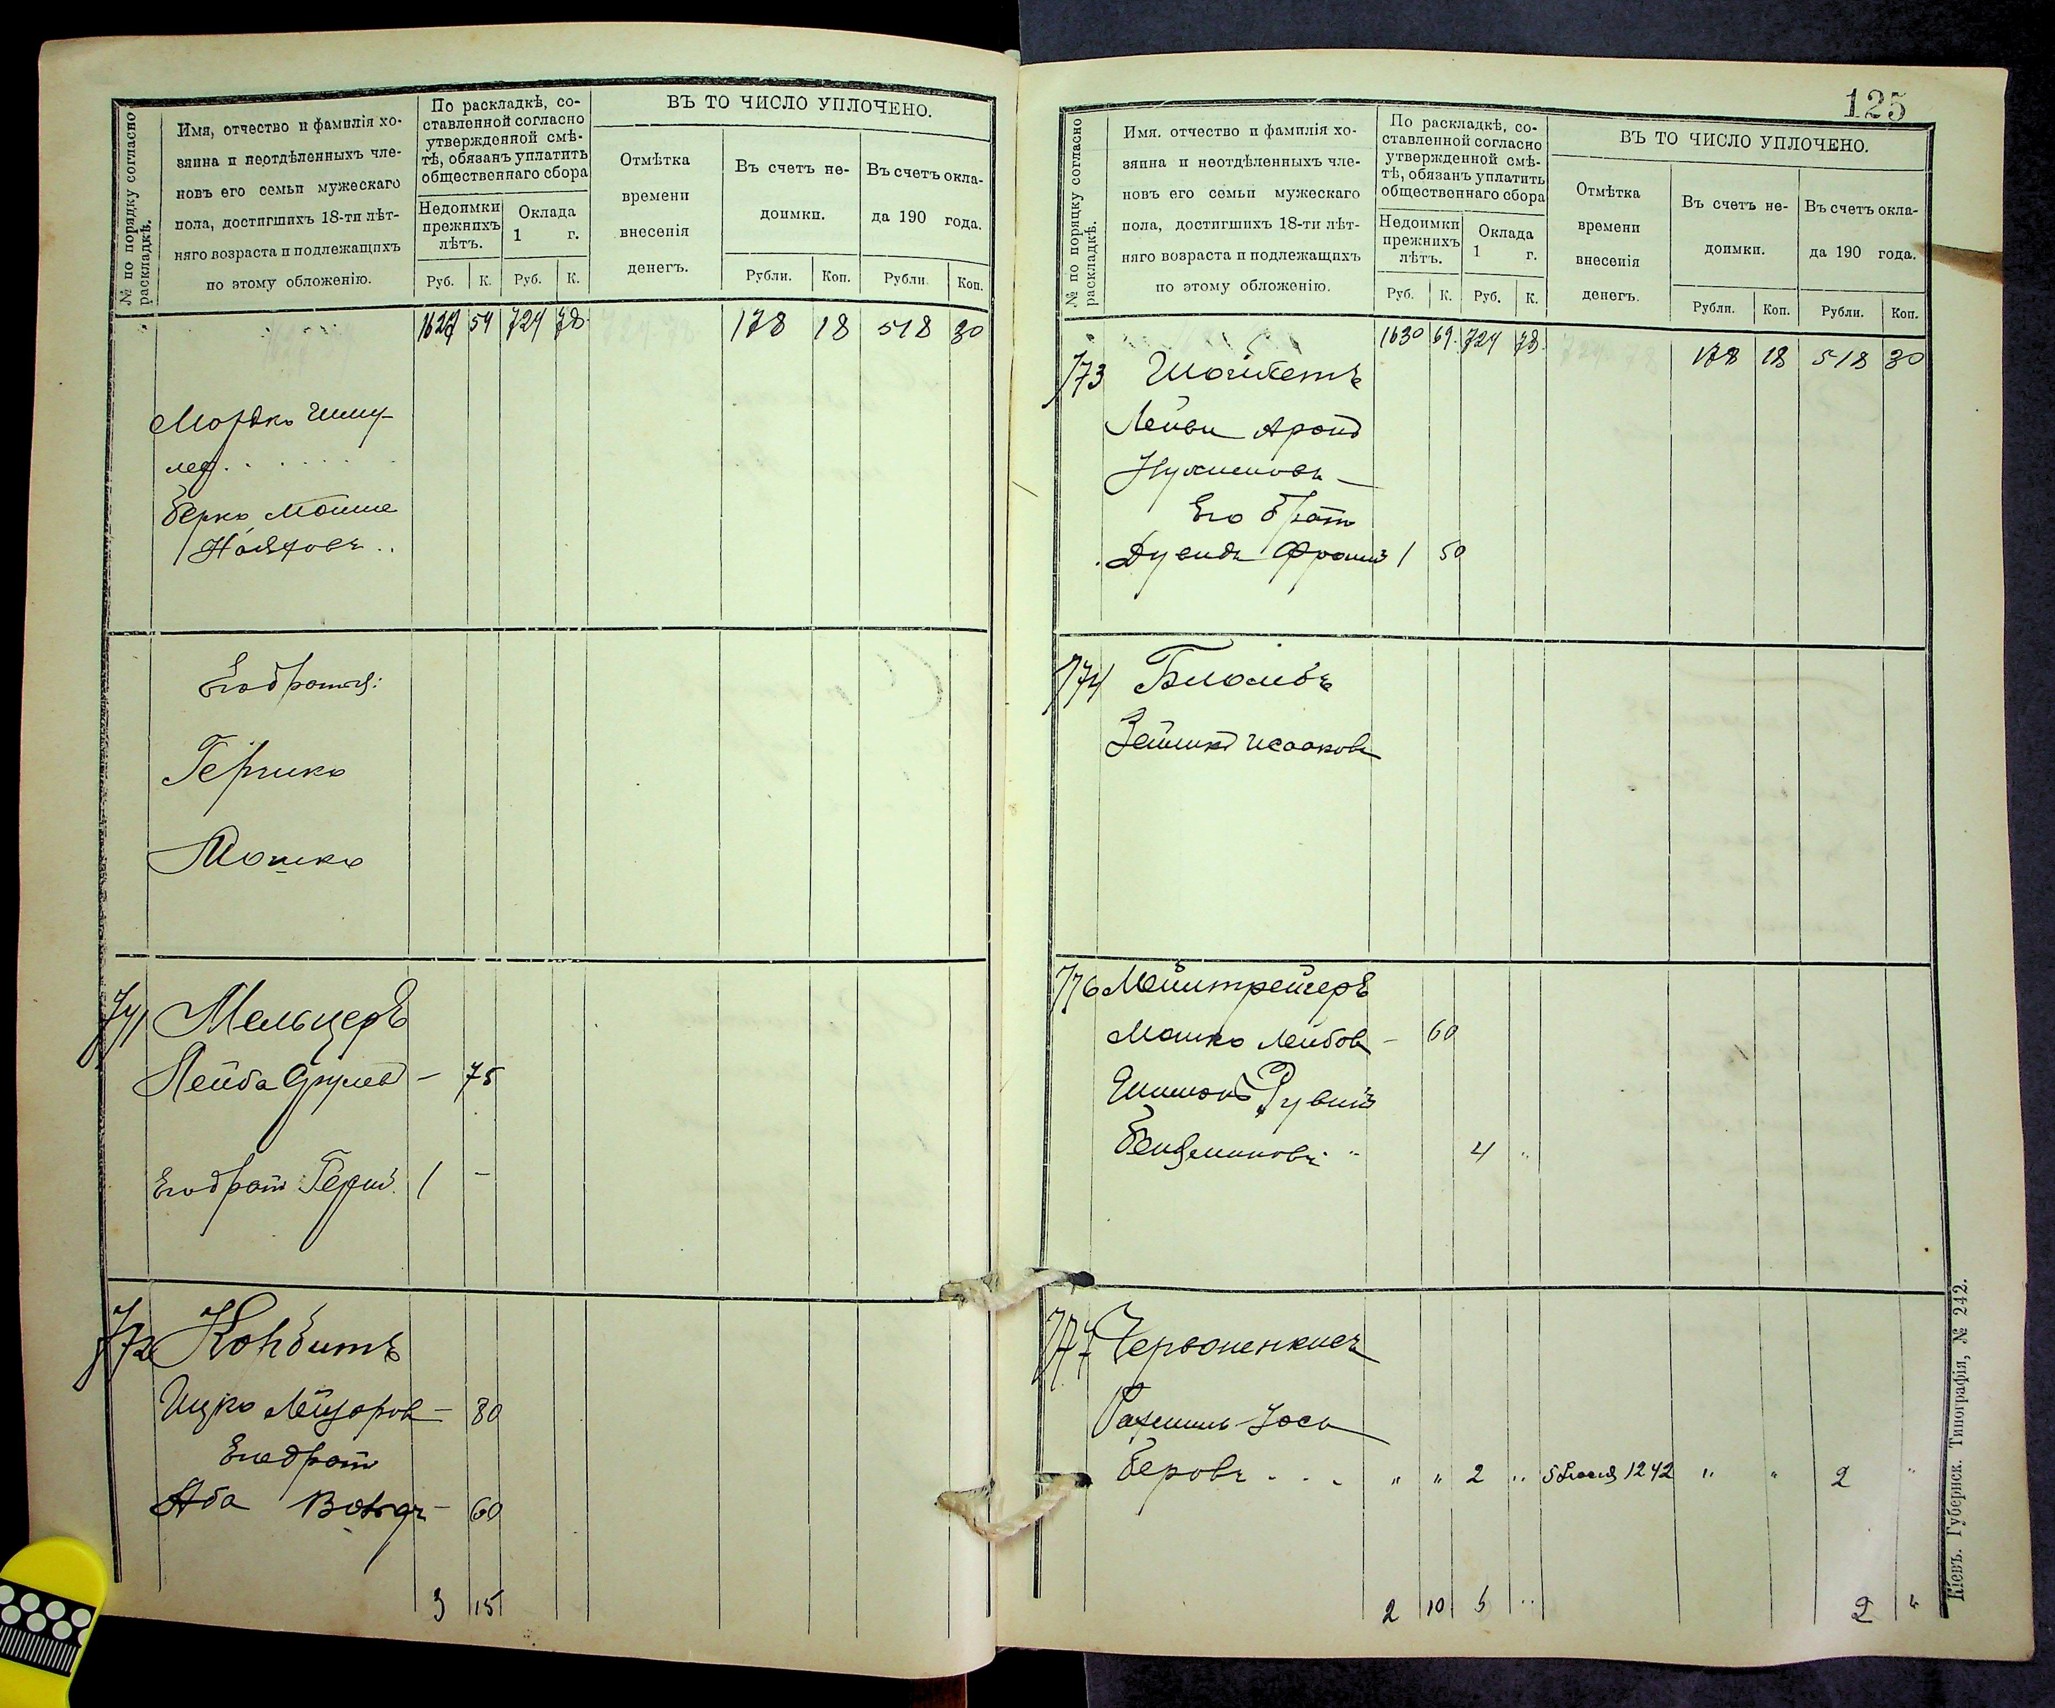 № по порядку согласно раскладкѣ.
Имя, отчество и фамилія хо-
зяина и неотдѣленныхъ чле-
новъ его семьи мужескаго
пола, достигшихъ 18-ти лѣт-
няго возраста и подлежащихъ
по этому обложенію.
По раскладкѣ, со-
ставленной согласно
утвержденной смѣ-
тѣ, обязанъ уплатить
общественнаго сбора
Недоимки
прежнихъ
лѣтъ.
Оклада
1 г.
Руб. К. Руб. К.
ВЪ ТО ЧИСЛО УПЛОЧЕНО.
Отмѣтка
времени
внесенія
денегъ.
Въ счетъ не-
доимки.
Рубли. Коп.
Въ счетъ окла-
да 190 года.
Рубли. Коп.
1627 54 724 78 178 18 518 30
Мордко Шму-
лев . . . . . .
Берко Мошие
Егобратья:
Гершко
Мошко
771 Мельцеръ
Лейба – 75
Егобрат Герш. 1 –
772
Ицко Лейзоров – 80
Егобрат
Аба – 60
3 15
125
№ по порядку согласно раскладкѣ.
Имя. отчество и фамилія хо-
зяина и неотдѣленныхъ чле-
новъ его семьи мужескаго
пола, достигшихъ 18-ти лѣт-
няго возраста и подлежащихъ
по этому обложенію.
По раскладкѣ, со-
ставленной согласно
утвержденной смѣ-
тѣ, обязанъ уплатить
общественнаго сбора
Недоимки
прежнихъ
лѣтъ.
Оклада
1 г.
Руб. К. Руб. К.
ВЪ ТО ЧИСЛО УПЛОЧЕНО.
Отмѣтка
времени
внесенія
денегъ.
Въ счетъ не-
доимки.
Рубли. Коп.
Въ счетъ окла-
да 190 года.
Рубли. Коп.
1630 69 724 78 178 18 518 30
773 Шойхетъ
Лейви Арон
Нухимовъ –
Его брат
1 50
774
Зейлик Исааков
776
Мошко Лейбов – 60
Шимон Рувин
4 "
777 Червоненкисъ
Рахмиль-Іось
Беровъ . . . " " 2 " 1242 " " 2 "
2 10 "
2 "
Кіевъ. Губернск. Типографія, № 242.